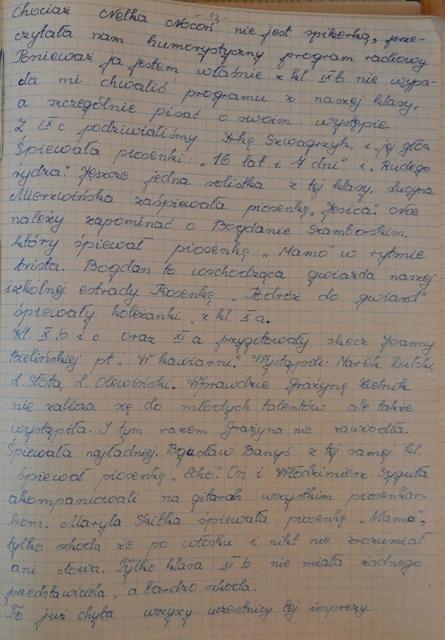 Chociaż Melka Mocoń nie jest spikerką, prze-
czytała nam humorystyczny program radiowy
Ponieważ ja jestem właśnie z kl. IX b nie wypa-
da mi chwalić programu z naszej klasy,
a szczególnie pisać o swoim występie
Z IX c podziwialiśmy Irkę Szwagrzyk, i jej głos
Śpiewała piosenki: „16 lat i 7 dni" i „Rudego
rydza". Jeszcze jedna solistka z tej klasy, Lucyna
Mierzwińska zaśpiewała piosenkę „Jesica". Nie
należy zapominać o Bogdanie Szamborskim,
który śpiewał piosenkę „Mamo" w rytmie
twista. Bogdan to wschodząca gwiazda naszej
szkolnej estrady. Piosenkę „Podróż do gwiazd"
śpiewały koleżanki z kl. X a.
Kl. X b i c oraz XI a przygotowały skecz Joanny
Bielińskiej pt. „W kawiarni." Wystąpili: Marek Dulski,
L. Słota, L. Olewiński. Wprawdzie Grażynę
nie zalicza się do młodych talentów ale także
wystąpiła. I tym razem Grażyna nie zawiodła.
Śpiewała najładniej. Bogusław Banyś z tej samej kl.
śpiewał piosenkę „Echo". On i Włodzimierz Syguła
akompaniowali na gitarach wszystkim piosenkar-
kom. Maryla Skitka śpiewała piosenkę „Mamo",
tylko szkoda że po włosku i nikt nie zrozumiał
ani słowa. Tylko klasa XI b nie miała żadnego
przedstawiciela, a bardzo szkoda.
To już chyba wszyscy uczestnicy tej imprezy.